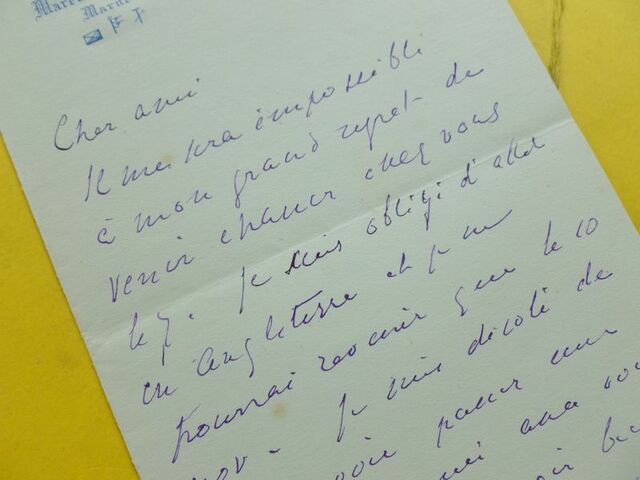 Mare
Marne
Cher ami
Il me sera impossible
à mon grand regret de
venir chasser chez vous
le 7. Je suis obligé d'aller
en Angleterre et je ne
pourrai revenir que le 10
nov. Je suis désolé de
passer une